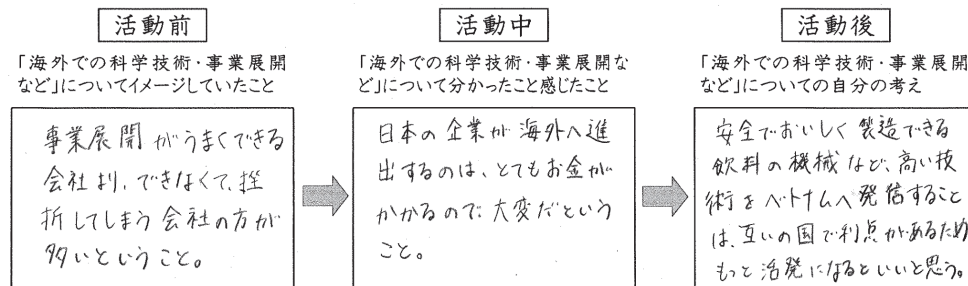 活動前
「海外での科学技術・事業展開
など」についてイメージしていたこと
事業展開がうまくできる
会社より、できなくて、挫
折してしまう会社の方が
多いということ。
活動中
「海外での科学技術・事業展開な
ど」について分かったこと感じたこと
日本の企業が海外へ進
出するのは、とてもお金が
かかるので大変だという
こと。
活動後
「海外での科学技術・事業展開
など」についての自分の考え
安全でおいしく製造できる
飲料の機械など、高い技
術をベトナムへ発信すること
は、互いの国で利点があるため
もっと活発になるといいと思う。